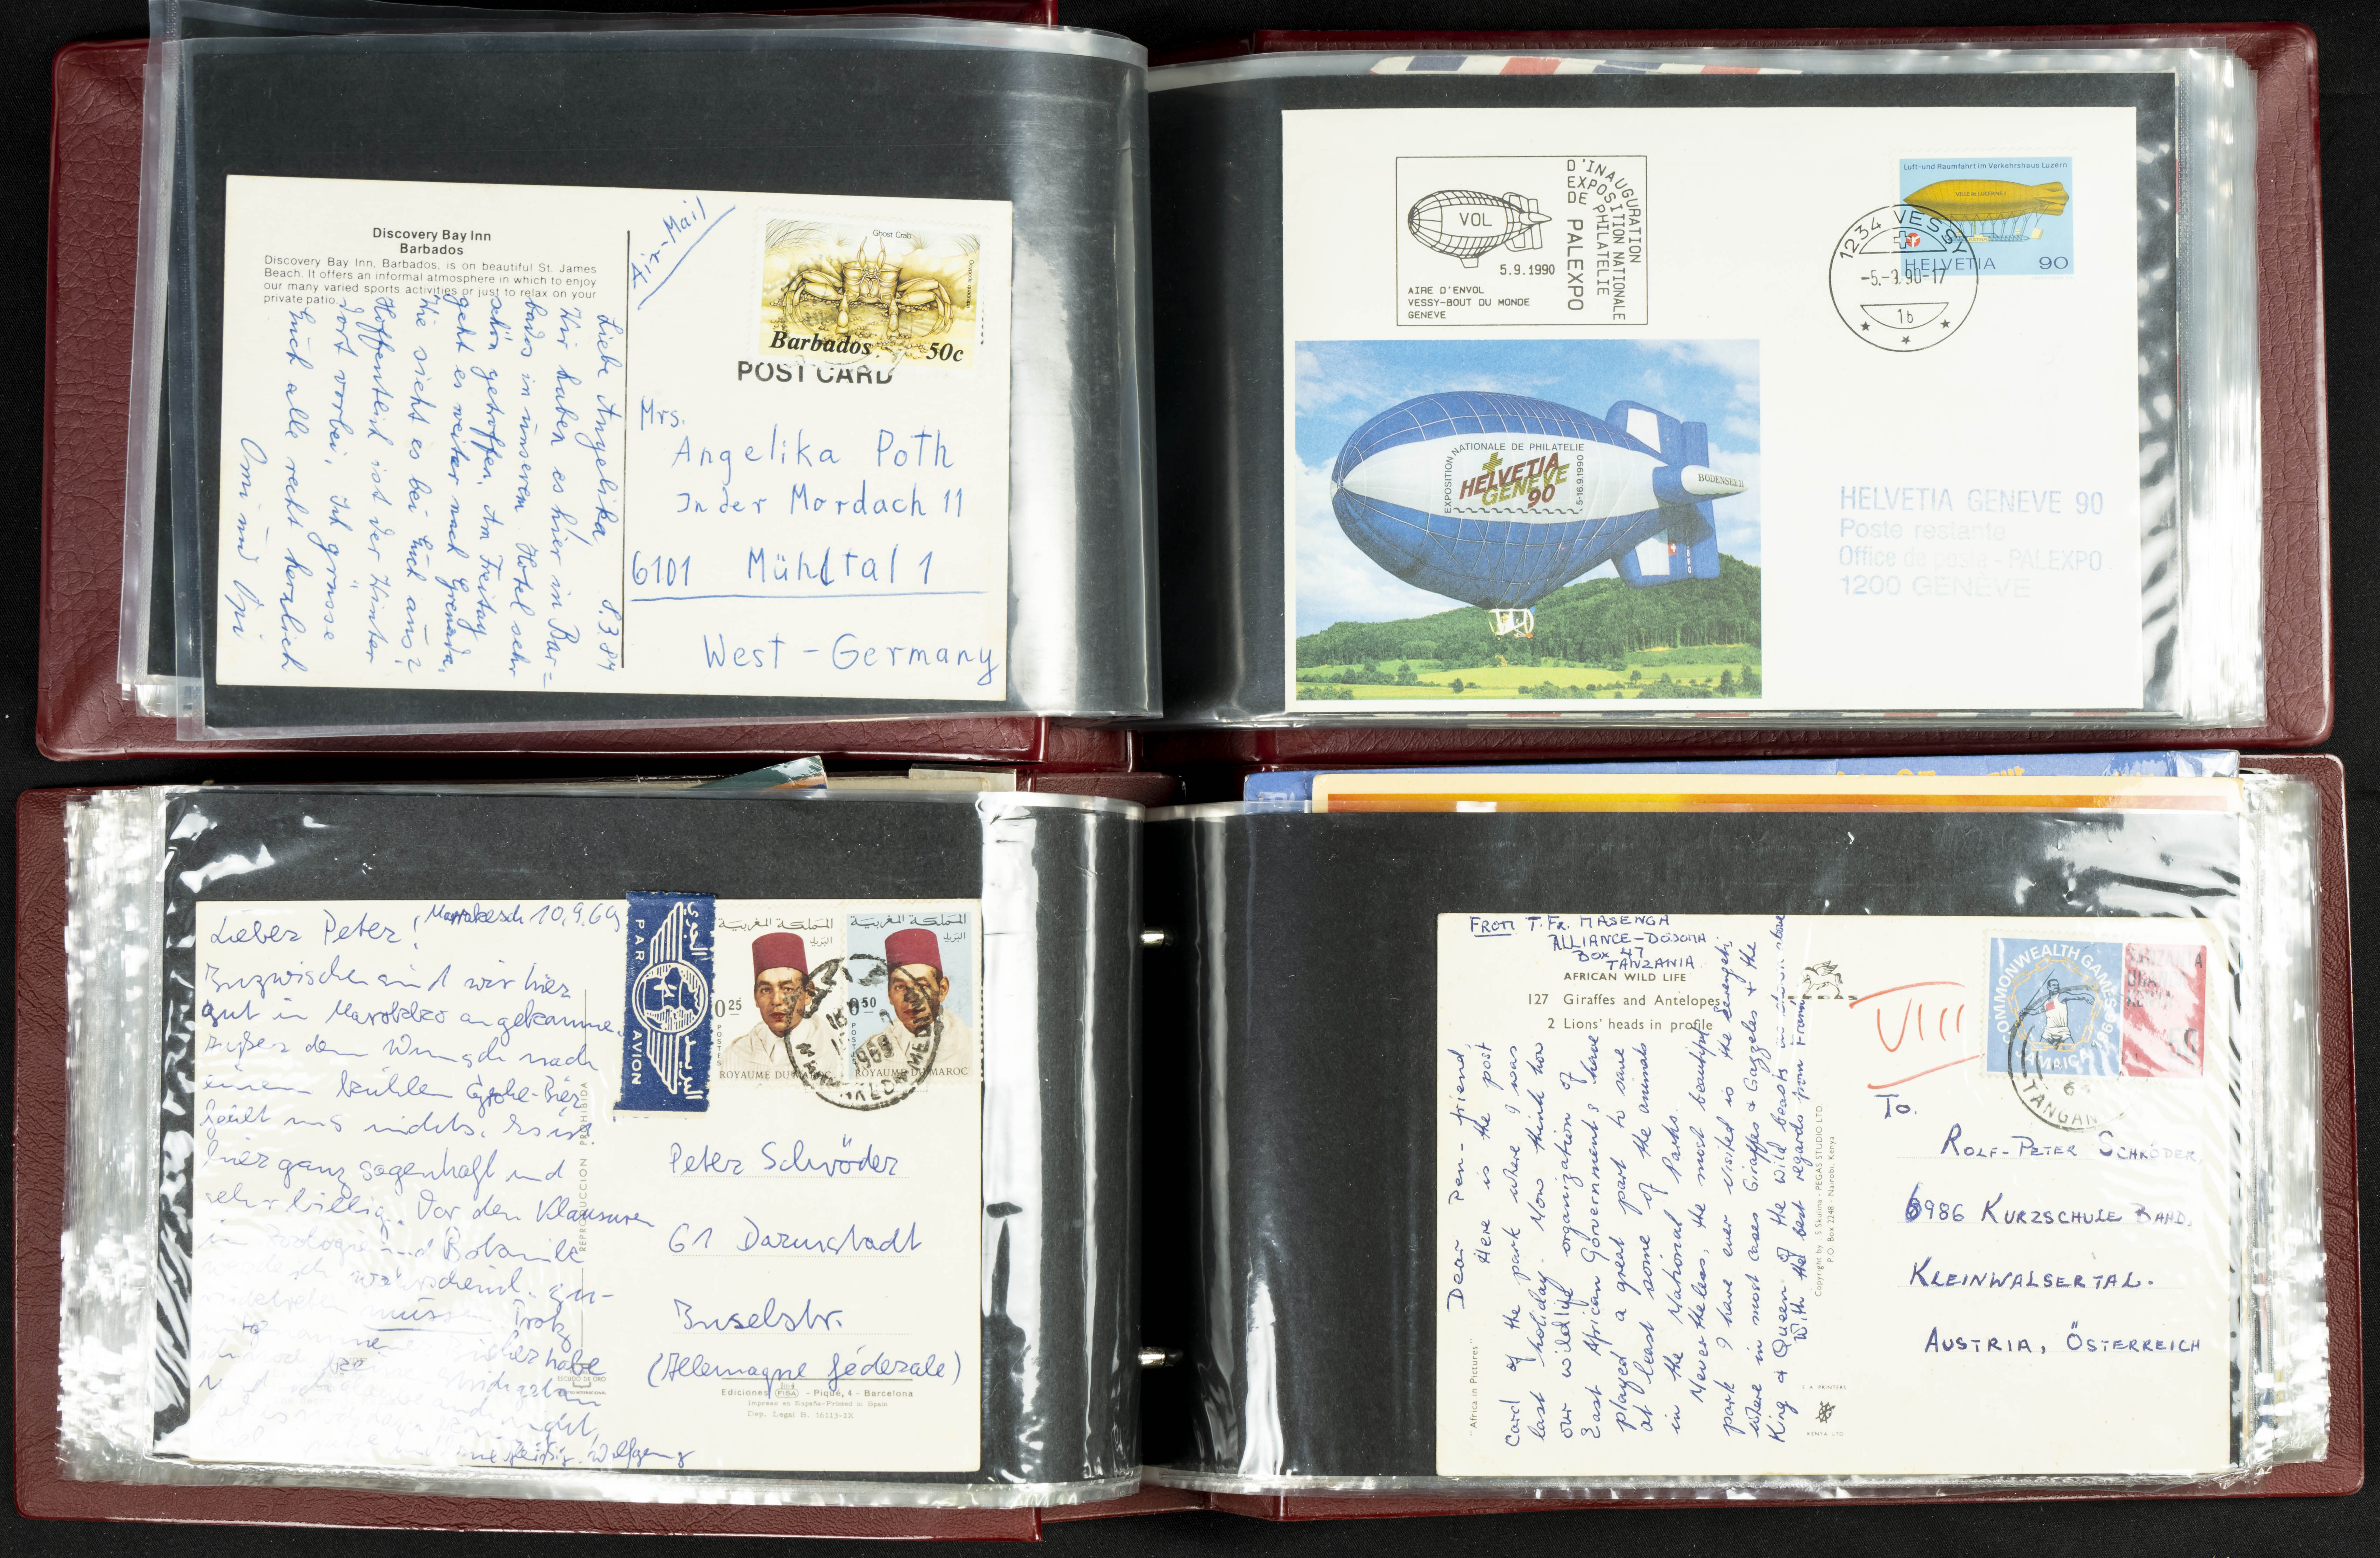 Discovery Bay Inn
Barbados
Discovery Bay Inn, Barbados, is on beautiful St. James
Beach. It offers an informal atmosphere in which to enjoy
our many varied sports activities or just to relax on your
private patio.
Air-Mail
Ghost Crab
Barbados 50c
POST CARD
Liebe Angelika, 8.3.84
Wir haben es hier in Bar=
bados in unserem Hotel sehr
schön getroffen. Am Freitag
geht es weiter nach Grenada.
Wie sieht es bei Euch aus?
Hoffentlich ist der Winter
dort vorbei. Ich grüsse
Euch alle recht herzlich
Omi und Opi
Mrs.
Angelika Poth
In der Mordach 11
6101 Mühltal 1
West-Germany
VOL
D'INAUGURATION
EXPOSITION NATIONALE
DE PHILATELIE
PALEXPO
5.9.1990
AIRE D'ENVOL
VESSY-BOUT DU MONDE
GENEVE
Luft-und Raumfahrt im Verkehrshaus Luzern
VILLE de LUCERNE I
HELVETIA 90
1234 VESSY
-5.-9.90-17
1b
EXPOSITION NATIONALE DE PHILATELIE
HELVETIA
GENEVE
90
5-16.9.1990
BODENSEE II
HELVETIA GENEVE 90
Poste restante
Office de poste - PALEXPO
1200 GENEVE
Lieber Peter! Marrakesch 10.9.69
Inzwischen sind wir hier
gut in Marokko angekommen.
Außer dem Wunsch nach
einem kühlen Grohe-Bier
fehlt uns nichts. Es ist
hier ganz sagenhaft und
sehr billig. Vor den Klausuren
in Zoologie und Botanik
müssen Trotz
Bisher habe
Wolfgang
PAR AVION
البريد الجوي
المملكة المغربية
البريد
0.25
POSTES
ROYAUME DU MAROC
المملكة المغربية
البريد
0.50
POSTES
ROYAUME DU MAROC
1969
REPRODUCCION PROHIBIDA
ESCUDO DE ORO
Peter Schröder
61 Darmstadt
Inselstr.
(Allemagne féderale)
Ediciones FISA - Pique, 4 - Barcelona
Impreso en España-Printed in Spain
Dep. Legal B. 16113-IX
FROM T. Fr. MASENGA
ALLIANCE-DODOMA
BOX 47
TANZANIA
AFRICAN WILD LIFE
127 Giraffes and Antelopes
2 Lions' heads in profile
Dear Pen-friend,
Here is the post
card of the park where I was
last holiday. Now think how
our wildlife organization of
East African Governments have
played a great part to save
at least some of the animals
in the National Parks.
Never theless, the most beautiful
park I have ever visited is the Serengeti
where in most cases Giraffes & Gazzeles & the
King & Queen of the wild beasts
With the best regards from
"Africa in Pictures"
Copyright by: S. Skulina - PEGAS STUDIO LTD.
P.O. Box 2248 - Nairobi, Kenya
E.A. PRINTERS
KENYA LTD
VIII
COMMONWEALTH GAMES
JAMAICA 1966
TANGAN
To.
ROLF-PETER SCHRÖDER,
6986 KURZSCHULE BAAD.
KLEINWALSERTAL.
AUSTRIA, ÖSTERREICH